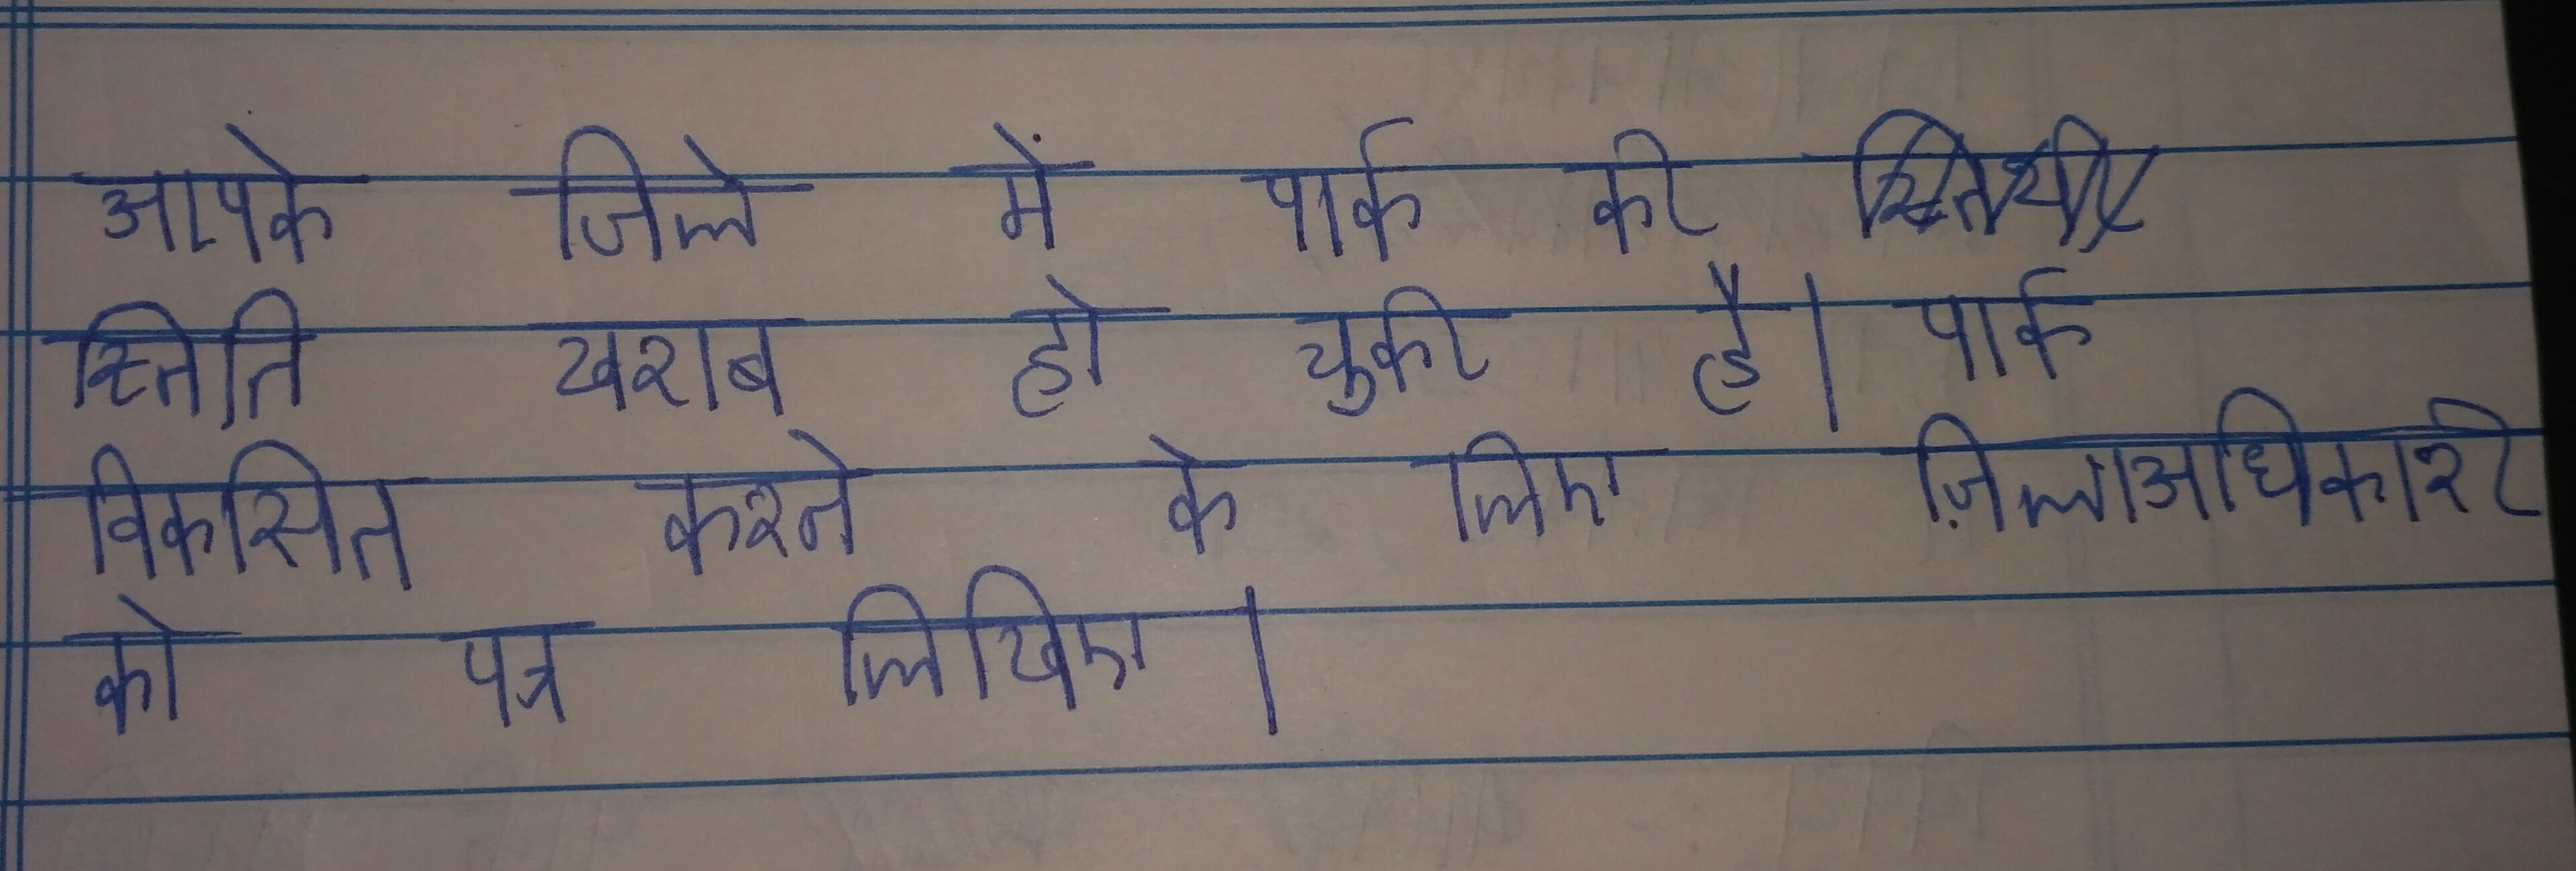 आपके जिले में पार्क की
स्तिति खराब हो चुकी है। पार्क
विकसित करने के लिए ज़िलाअधिकारी
को पत्र लिखिए।